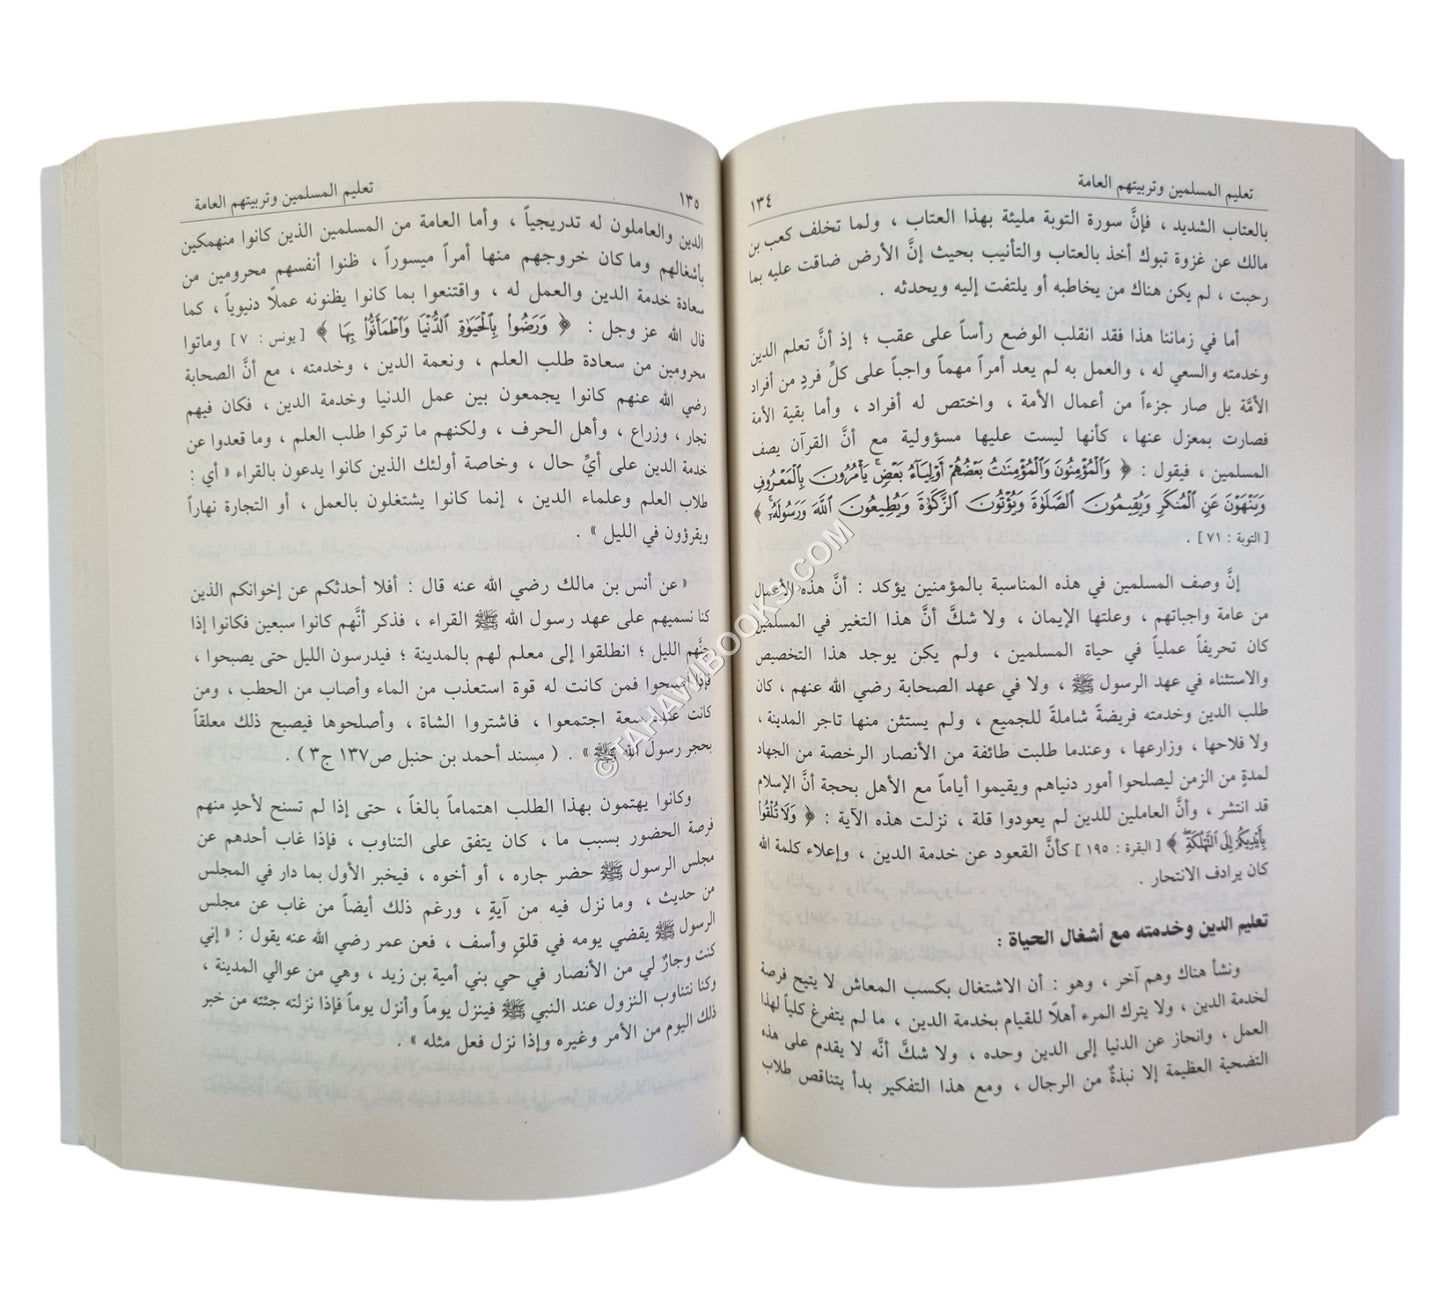 تعليم المسلمين وتربيتهم العامة
١٣٤
بالعتاب الشديد ، فإنَّ سورة التوبة مليئة بهذا العتاب ، ولما تخلف كعب بن
مالك عن غزوة تبوك أخذ بالعتاب والتأنيب بحيث إنَّ الأرض ضاقت عليه بما
رحبت ، لم يكن هناك من يخاطبه أو يلتفت إليه ويحدثه .
أما في زماننا هذا فقد انقلب الوضع رأساً على عقب ؛ إذ أنَّ تعلم الدين
وخدمته والسعي له ، والعمل به لم يعد أمراً مهماً واجباً على كلِّ فردٍ من أفراد
الأمَّة بل صار جزءاً من أعمال الأمة ، واختص له أفراد ، وأما بقية الأمة
فصارت بمعزل عنها ، كأنها ليست عليها مسؤولية مع أنَّ القرآن يصف
المسلمين ، فيقول : ﴿ وَالْمُؤْمِنُونَ وَالْمُؤْمِنَاتُ بَعْضُهُمْ أَوْلِيَاءُ بَعْضٍ ۚ يَأْمُرُونَ بِالْمَعْرُوفِ
وَيَنْهَوْنَ عَنِ الْمُنكَرِ وَيُقِيمُونَ الصَّلَوٰةَ وَيُؤْتُونَ الزَّكَوٰةَ وَيُطِيعُونَ اللَّهَ وَرَسُولَهُ ۚ ﴾
[ التوبة : ٧١ ] .
إنَّ وصف المسلمين في هذه المناسبة بالمؤمنين يؤكد : أنَّ هذه الأعمال
من عامة واجباتهم ، وعلتها الإيمان ، ولا شكَّ أنَّ هذا التغير في المسلمين
كان تحريفاً عملياً في حياة المسلمين ، ولم يكن يوجد هذا التخصيص
والاستثناء في عهد الرسول ﷺ ، ولا في عهد الصحابة رضي الله عنهم ، كان
طلب الدين وخدمته فريضةً شاملةً للجميع ، ولم يستثن منها تاجر المدينة ،
ولا فلاحها ، وزارعها ، وعندما طلبت طائفة من الأنصار الرخصة من الجهاد
لمدةٍ من الزمن ليصلحوا أمور دنياهم ويقيموا أياماً مع الأهل بحجة أنَّ الإسلام
قد انتشر ، وأنَّ العاملين للدين لم يعودوا قلة ، نزلت هذه الآية : ﴿ وَلَا تُلْقُوا
بِأَيْدِيكُمْ إِلَى التَّهْلُكَةِ ﴾ [ البقرة : ١٩٥ ] كأنَّ القعود عن خدمة الدين ، وإعلاء كلمة الله
كان يرادف الانتحار .
تعليم الدين وخدمته مع أشغال الحياة :
ونشأ هناك وهم آخر ، وهو : أن الاشتغال بكسب المعاش لا يتيح فرصة
لخدمة الدين ، ولا يترك المرء أهلًا للقيام بخدمة الدين ، ما لم يتفرغ كلياً لهذا
العمل ، وانحاز عن الدنيا إلى الدين وحده ، ولا شكَّ أنَّه لا يقدم على هذه
التضحية العظيمة إلا نبذةٌ من الرجال ، ومع هذا التفكير بدأ يتناقص طلاب
١٣٥
تعليم المسلمين وتربيتهم العامة
الدين والعاملون له تدريجياً ، وأما العامة من المسلمين الذين كانوا منهمكين
بأشغالهم وما كان خروجهم منها أمراً ميسوراً ، ظنوا أنفسهم محرومين من
سعادة خدمة الدين والعمل له ، واقتنعوا بما كانوا يظنونه عملًا دنيوياً ، كما
قال الله عز وجل : ﴿ وَرَضُوا۟ بِالْحَيَوٰةِ الدُّنْيَا وَاطْمَأَنُّوا۟ بِهَا ﴾ [ يونس : ٧ ] وماتوا
محرومين من سعادة طلب العلم ، ونعمة الدين ، وخدمته ، مع أنَّ الصحابة
رضي الله عنهم كانوا يجمعون بين عمل الدنيا وخدمة الدين ، فكان فيهم
تجار ، وزراع ، وأهل الحرف ، ولكنهم ما تركوا طلب العلم ، وما قعدوا عن
خدمة الدين على أيِّ حال ، وخاصة أولئك الذين كانوا يدعون بالقراء « أي :
طلاب العلم وعلماء الدين ، إنما كانوا يشتغلون بالعمل ، أو التجارة نهاراً
ويقرؤون في الليل » .
« عن أنس بن مالك رضي الله عنه قال : أفلا أحدثكم عن إخوانكم الذين
كنا نسميهم على عهد رسول الله ﷺ القراء ، فذكر أنَّهم كانوا سبعين فكانوا إذا
جنَّهم الليل ؛ انطلقوا إلى معلم لهم بالمدينة ؛ فيدرسون الليل حتى يصبحوا ،
فإذا أصبحوا فمن كانت له قوة استعذب من الماء وأصاب من الحطب ، ومن
كانت عنده سعة اجتمعوا ، فاشتروا الشاة ، وأصلحوها فيصبح ذلك معلقاً
بحجر رسول الله ﷺ » . ( مسند أحمد بن حنبل ص١٣٧ ج٣ ) .
وكانوا يهتمون بهذا الطلب اهتماماً بالغاً ، حتى إذا لم تسنح لأحدٍ منهم
فرصة الحضور بسبب ما ، كان يتفق على التناوب ، فإذا غاب أحدهم عن
مجلس الرسول ﷺ حضر جاره ، أو أخوه ، فيخبر الأول بما دار في المجلس
من حديث ، وما نزل فيه من آيةٍ ، ورغم ذلك أيضاً من غاب عن مجلس
الرسول ﷺ يقضي يومه في قلقٍ وأسف ، فعن عمر رضي الله عنه يقول : « إني
كنت وجارٌ لي من الأنصار في حي بني أمية بن زيد ، وهي من عوالي المدينة ،
وكنا نتناوب النزول عند النبي ﷺ فينزل يوماً وأنزل يوماً فإذا نزلته جئته من خبر
ذلك اليوم من الأمر وغيره وإذا نزل فعل مثله » .
©TAHAWIBOOKS.COM